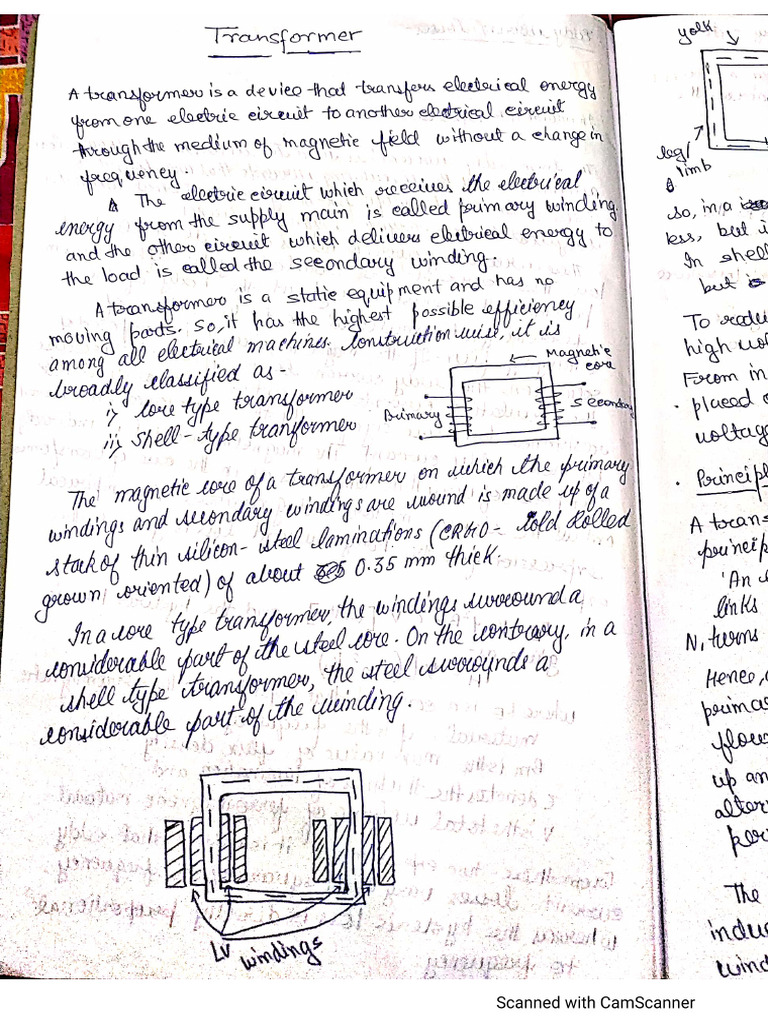 Transformer
A transformer is a device that transfers electrical energy
from one electric circuit to another electrical circuit
through the medium of magnetic field without a change in
frequency.
The electric circuit which receives the electrical
energy from the supply main is called primary winding
and the other circuit which delivers electrical energy to
the load is called the secondary winding.
A transformer is a static equipment and has no
moving parts. So, it has the highest possible efficiency
among all electrical machines. Construction wise, it is
broadly classified as-
i) core type transformer
ii) shell-type tranformer
Magnetic
core
Primary
Secondary
The magnetic core of a transformer on which the primary
windings and secondary windings are wound is made up of a
stack of thin silicon-steel laminations (CRGO- Cold Rolled
grown oriented) of about 0.35 mm thick.
In a core type transformer, the windings surround a
considerable part of the steel core. On the contrary, in a
shell type transformer, the steel surrounds a
considerable part of the winding.
LV windings
yolk
leg/
limb
so, in a
less, but i
In shell
but
To redu
high vol
From in
placed o
voltag
Principl
A trans
princip
'An
links
N, turns
Hence,
primar
flow
up an
alter
per
The
indu
wind
Scanned with CamScanner